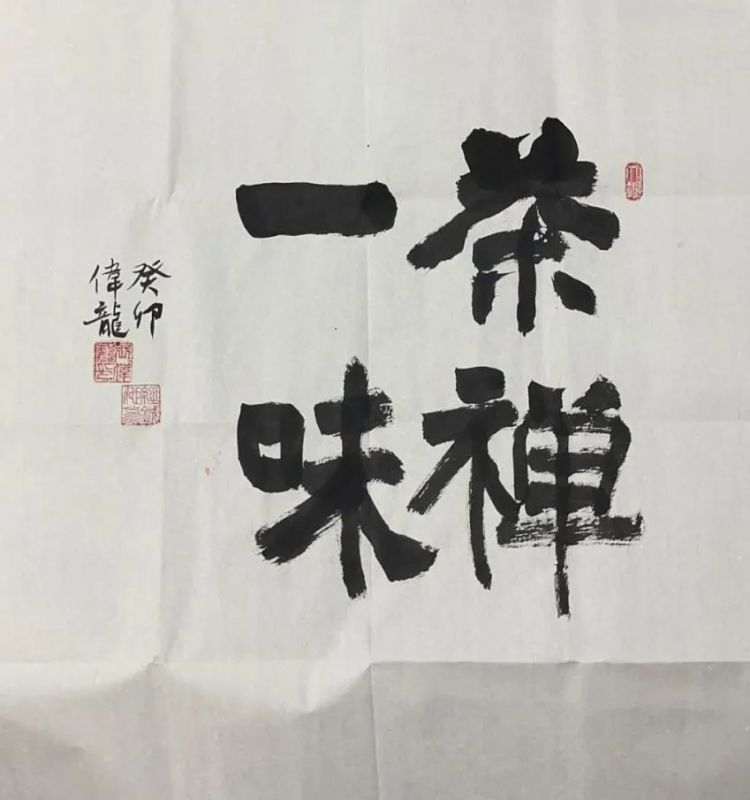 茶禅
一味
癸卯
偉龍